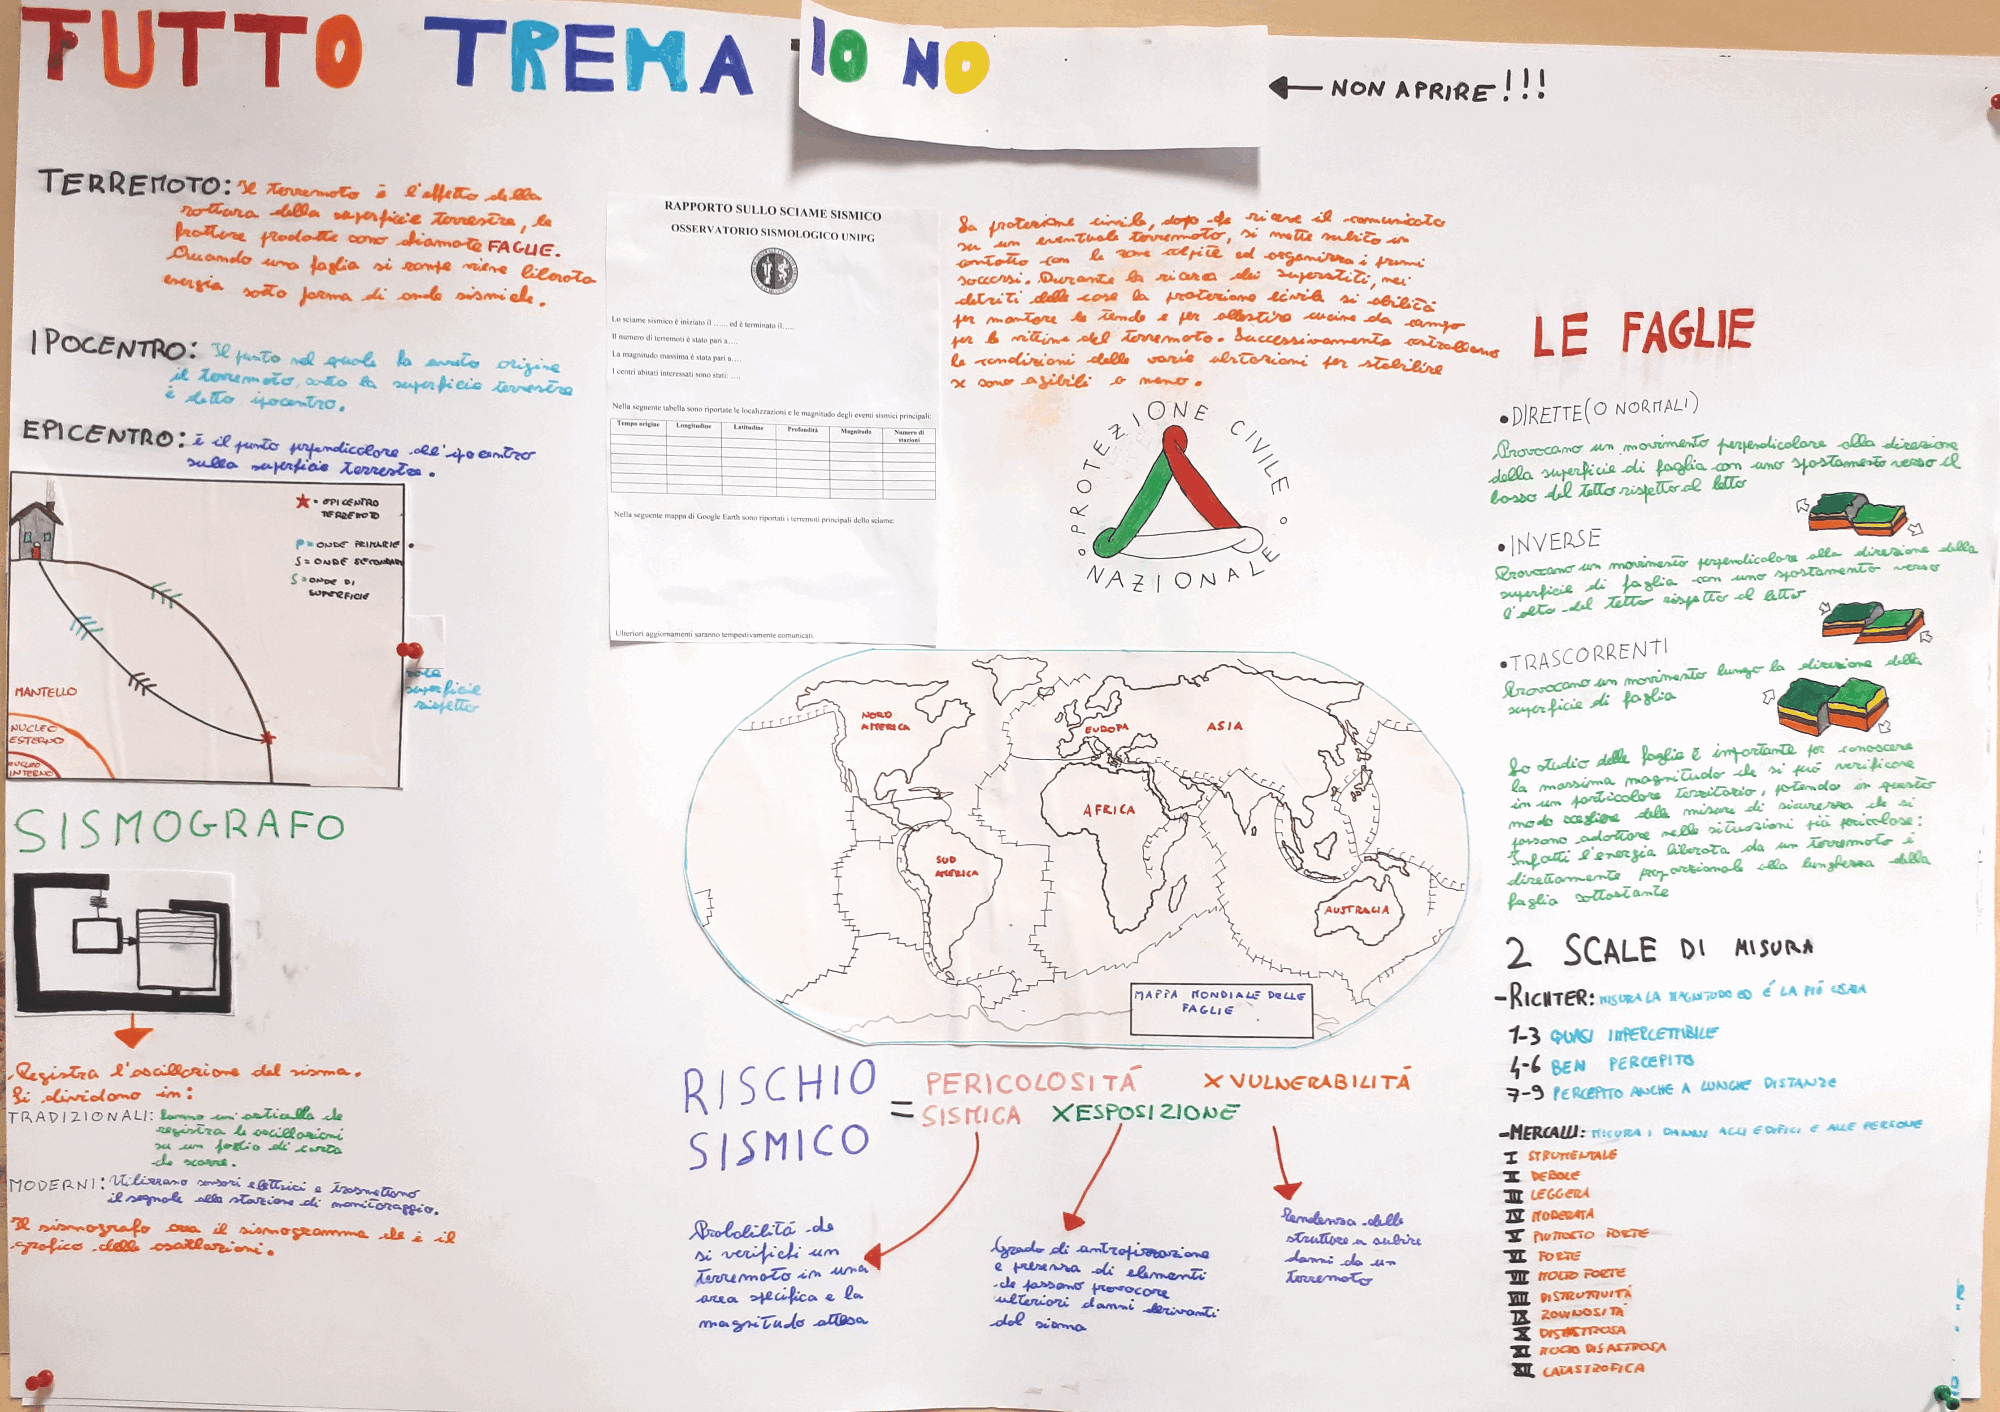 TUTTO TREMA IO NO
← NON APRIRE!!!
TERREMOTO: Il terremoto è l'effetto della
rottura della superficie terrestre, le
fratture prodotte sono chiamate FAGLIE.
Quando una faglia si rompe viene liberata
energia sotto forma di onde sismiche.
IPOCENTRO: Il punto nel quale ha avuto origine
il terremoto, sotto la superficie terrestre
è detto ipocentro.
EPICENTRO: è il punto perpendicolare all'ipocentro
sulla superficie terrestre.
★ = EPICENTRO
TERREMOTO
P = ONDE PRIMARIE
S = ONDE SECONDARIE
S = ONDE DI
SUPERFICIE
MANTELLO
NUCLEO
ESTERNO
NUCLEO
INTERNO
superficie
rispetto
SISMOGRAFO
Registra l'oscillazione del sisma.
Si dividono in:
TRADIZIONALI: hanno un'asticella che
registra le oscillazioni
su un foglio di carta
che scorre.
MODERNI: Utilizzano sensori elettrici e trasmettono
il segnale alla stazione di monitoraggio.
Il sismografo crea il sismogramma che è il
grafico delle oscillazioni.
RAPPORTO SULLO SCIAME SISMICO
OSSERVATORIO SISMOLOGICO UNIPG
Lo sciame sismico è iniziato il ...... ed è terminato il.....
Il numero di terremoti è stato pari a....
La magnitudo massima è stata pari a....
I centri abitati interessati sono stati: ....
Nella seguente tabella sono riportate le localizzazioni e le magnitudo degli eventi sismici principali:
Tempo origine Longitudine Latitudine Profondità Magnitudo Numero di
stazioni
Nella seguente mappa di Google Earth sono riportati i terremoti principali dello sciame:
Ulteriori aggiornamenti saranno tempestivamente comunicati.
La protezione civile, dopo che riceve il comunicato
su un eventuale terremoto, si mette subito in
contatto con le zone colpite ed organizza i primi
soccorsi. Durante la ricerca dei superstiti, nei
detriti delle case la protezione civile si abilita
per montare le tende e per allestire cucine da campo
per le vittime del terremoto. Successivamente controllano
le condizioni delle varie abitazioni per stabilire
se sono agibili o meno.
PROTEZIONE CIVILE
NAZIONALE
NORD
AMERICA
EUROPA
ASIA
AFRICA
SUD
AMERICA
AUSTRALIA
MAPPA MONDIALE DELLE
FAGLIE
RISCHIO
SISMICO
= PERICOLOSITÁ
SISMICA
X ESPOSIZIONE
X VULNERABILITÁ
Probabilità che
si verifichi un
terremoto in una
area specifica e la
magnitudo attesa
Grado di antropizzazione
e presenza di elementi
che possono provocare
ulteriori danni derivanti
dal sisma
Tendenza delle
strutture a subire
danni da un
terremoto
LE FAGLIE
•DIRETTE(O NORMALI)
Provocano un movimento perpendicolare alla direzione
della superficie di faglia con uno spostamento verso il
basso del tetto rispetto al letto
•INVERSE
Provocano un movimento perpendicolare alla direzione della
superficie di faglia con uno spostamento verso
l'alto del tetto rispetto al letto
•TRASCORRENTI
Provocano un movimento lungo la direzione della
superficie di faglia
Lo studio delle faglie è importante per conoscere
la massima magnitudo che si può verificare
in un particolare territorio, potendo in questo
modo scegliere delle misure di sicurezza che si
possano adottare nelle situazioni più pericolose:
Infatti l'energia liberata da un terremoto è
direttamente proporzionale alla lunghezza della
faglia sottostante
2 SCALE DI MISURA
-RICHTER: MISURA LA MAGNITUDO ED É LA PIÚ USATA
1-3 QUASI IMPERCETTIBILE
4-6 BEN PERCEPITO
7-9 PERCEPITO ANCHE A LUNGHE DISTANZE
-MERCALLI: MISURA I DANNI AGLI EDIFICI E ALLE PERSONE
I STRUMENTALE
II DEBOLE
III LEGGERA
IV MODERATA
V PIUTTOSTO FORTE
VI FORTE
VII MOLTO FORTE
VIII DISTRUTTIVITÁ
IX ROVINOSITÁ
X DISASTROSA
XI MOLTO DISASTROSA
XII CATASTROFICA